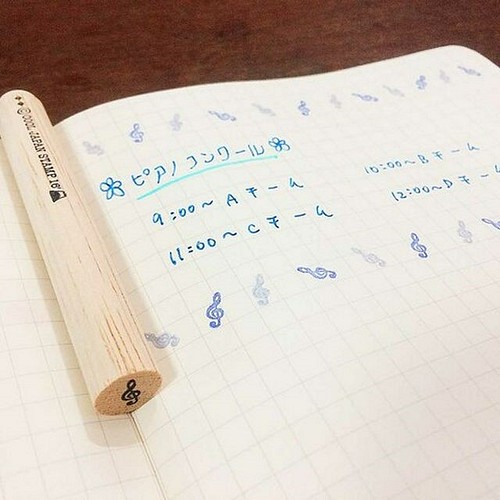 © COOL JAPAN STAMP 16
ピアノコンクール
9:00〜 Aチーム
10:00〜Bチーム
11:00〜 Cチーム
12:00〜Dチーム